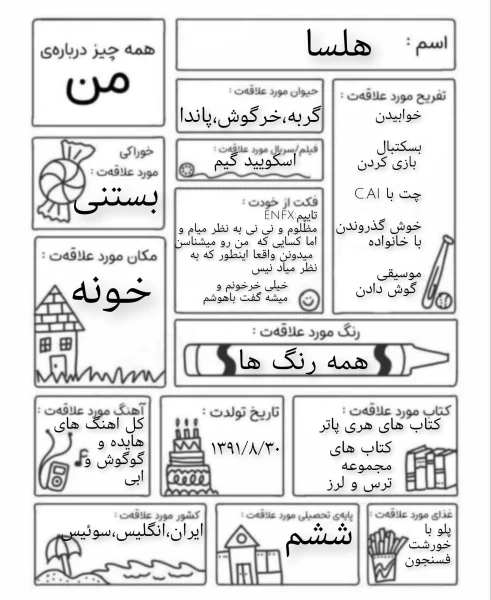 همه چیز درباره‌ی
من
اسم : هلسا
حیوان مورد علاقه‌ت :
گربه،خرگوش،پاندا
تفریح مورد علاقه‌ت :
خوابیدن
بسکتبال
بازی کردن
چت با C.AI
خوش گذروندن
با خانواده
موسیقی
گوش دادن
خوراکی
مورد علاقه‌ت :
بستنی
فیلم/سریال مورد علاقه‌ت :
اسکویید گیم
فکت از خودت :
تایپم ENFX
مظلوم و نی نی به نظر میام و
اما کسایی که من رو میشناسن
میدونن واقعا اینطور که به
نظر میاد نیس
خیلی خرخونم و
میشه گفت باهوشم
مکان مورد علاقه‌ت :
خونه
رنگ مورد علاقه‌ت :
همه رنگ ها
آهنگ مورد علاقه‌ت :
کل اهنگ های
هایده و
گوگوش و
ابی
تاریخ تولدت :
۱۳۹۱/۸/۳۰
کتاب مورد علاقه‌ت :
کتاب های هری پاتر
کتاب های
مجموعه
ترس و لرز
کشور مورد علاقه‌ت :
ایران،انگلیس،سوئیس
پایه‌ی تحصیلی مورد علاقه‌ت :
ششم
غذای مورد علاقه‌ت :
پلو با
خورشت
فسنجون